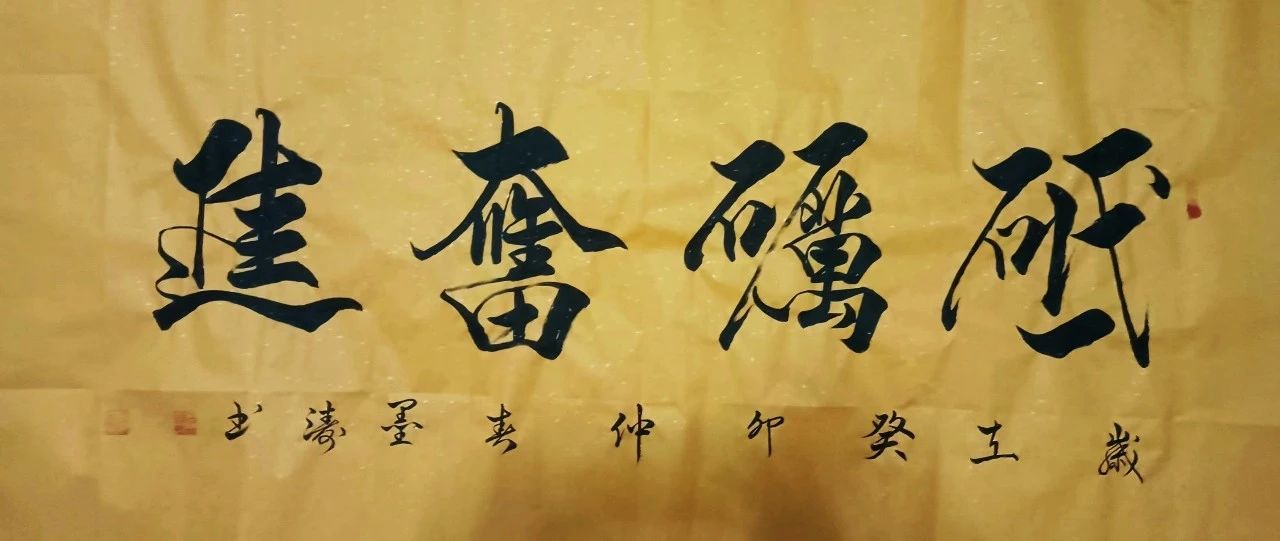 砥礪奮進
歲在癸卯仲春墨濤书